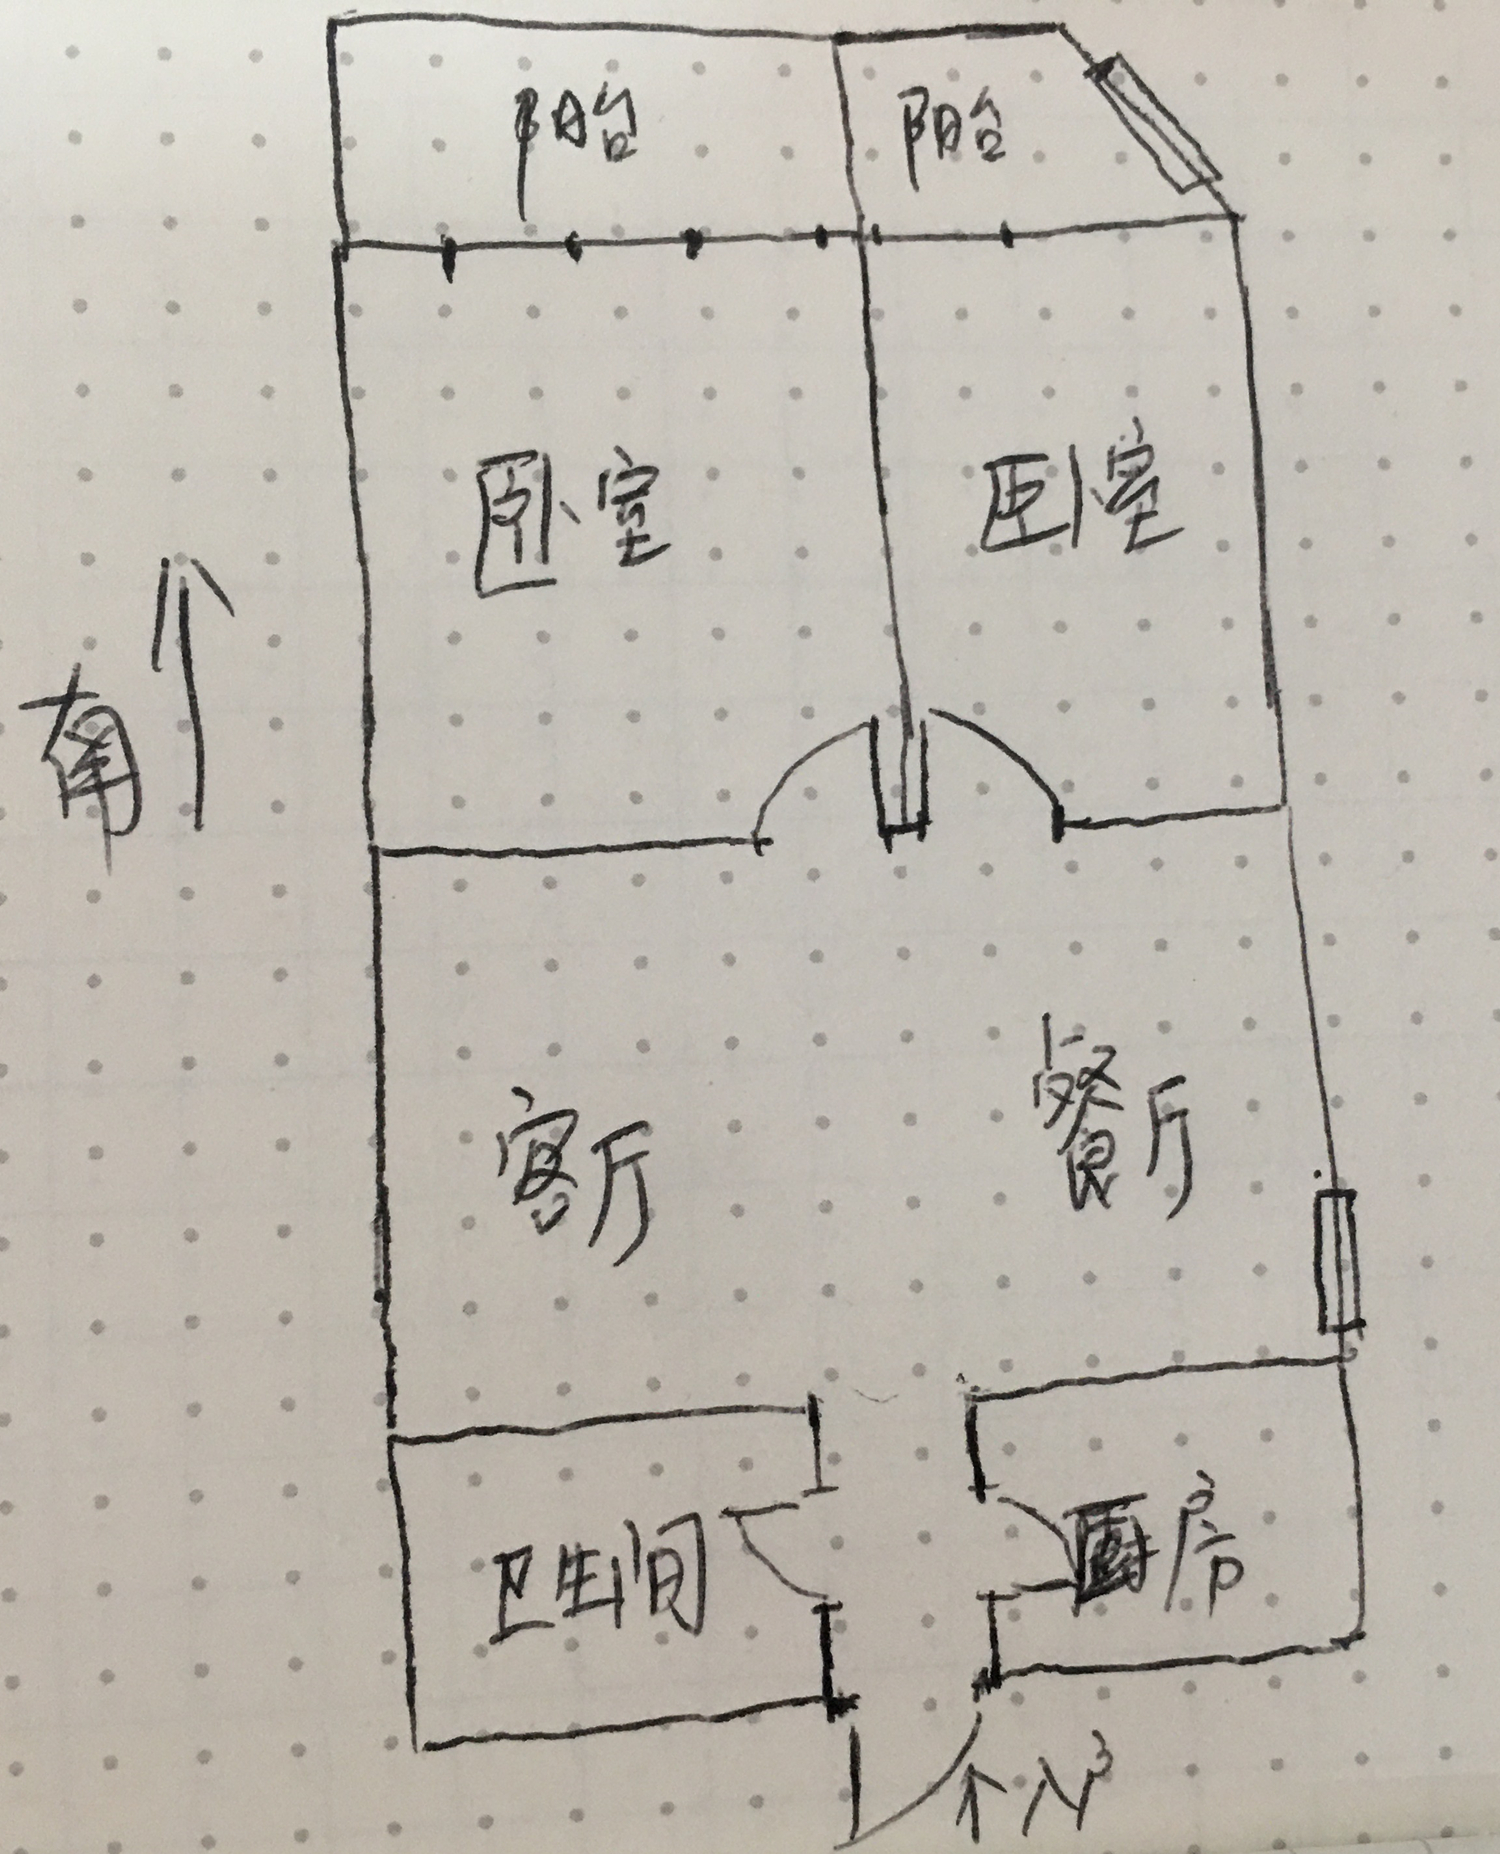 阳台
阳台
卧室
卧室
南
客厅
餐厅
卫生间
厨房
入户